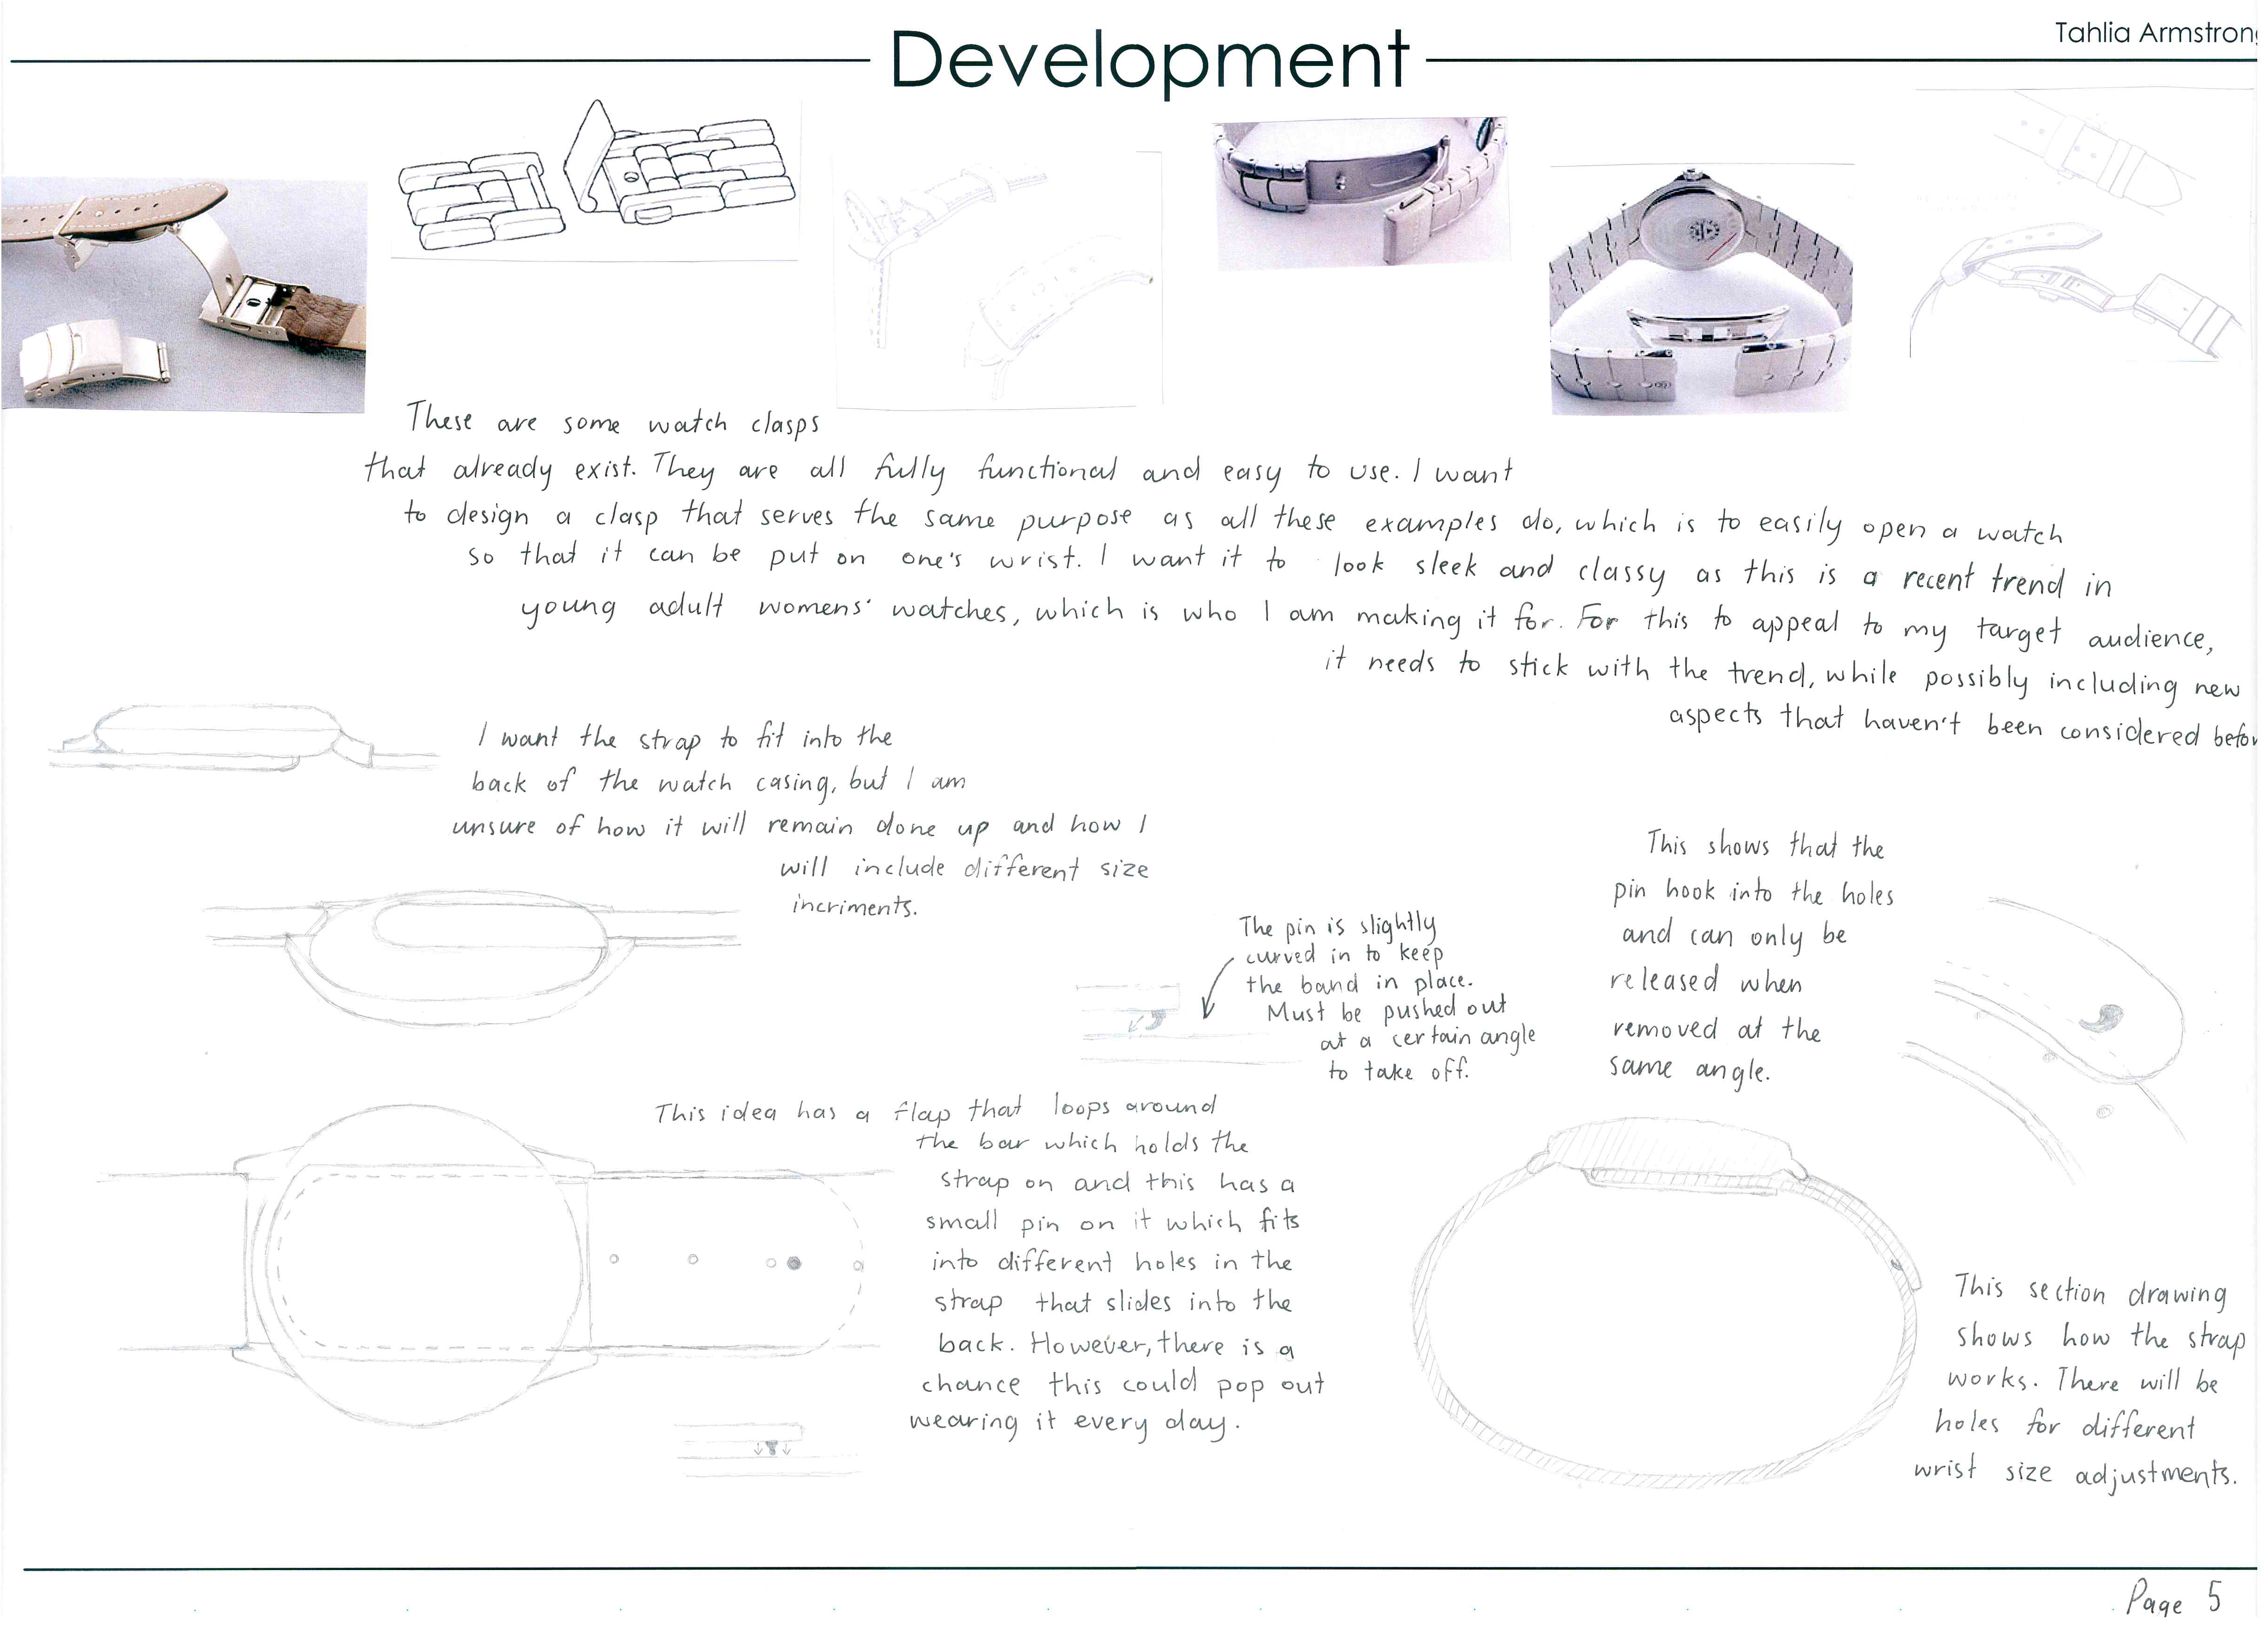 Development
Tahlia Armstrong
These are some watch clasps
that already exist. They are all fully functional and easy to use. I want
to design a clasp that serves the same purpose as all these examples do, which is to easily open a watch
so that it can be put on one's wrist. I want it to look sleek and classy as this is a recent trend in
young adult womens' watches, which is who I am making it for. For this to appeal to my target audience,
it needs to stick with the trend, while possibly including new
aspects that haven't been considered befor
I want the strap to fit into the
back of the watch casing, but I am
unsure of how it will remain done up and how I
will include different size
incriments.
The pin is slightly
curved in to keep
the band in place.
Must be pushed out
at a certain angle
to take off.
This shows that the
pin hook into the holes
and can only be
released when
removed at the
same angle.
This idea has a flap that loops around
the bar which holds the
strap on and this has a
small pin on it which fits
into different holes in the
strap that slides into the
back. However, there is a
chance this could pop out
wearing it every day.
This section drawing
shows how the strap
works. There will be
holes for different
wrist size adjustments.
Page 5